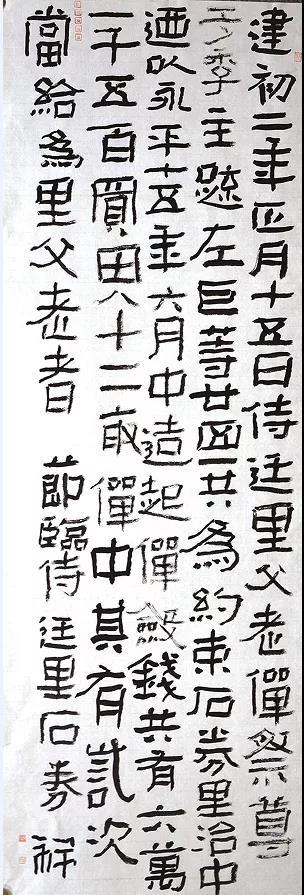 建初二年正月十五日侍廷里父老僤祭尊
于季主疏左巨等廿共為約束石券里治中
迺以永平十五年六月中造起僤斂錢共有六萬
一千五百買田八十二畝僤中其有訾次
當給為里父老者 節臨侍廷里石券